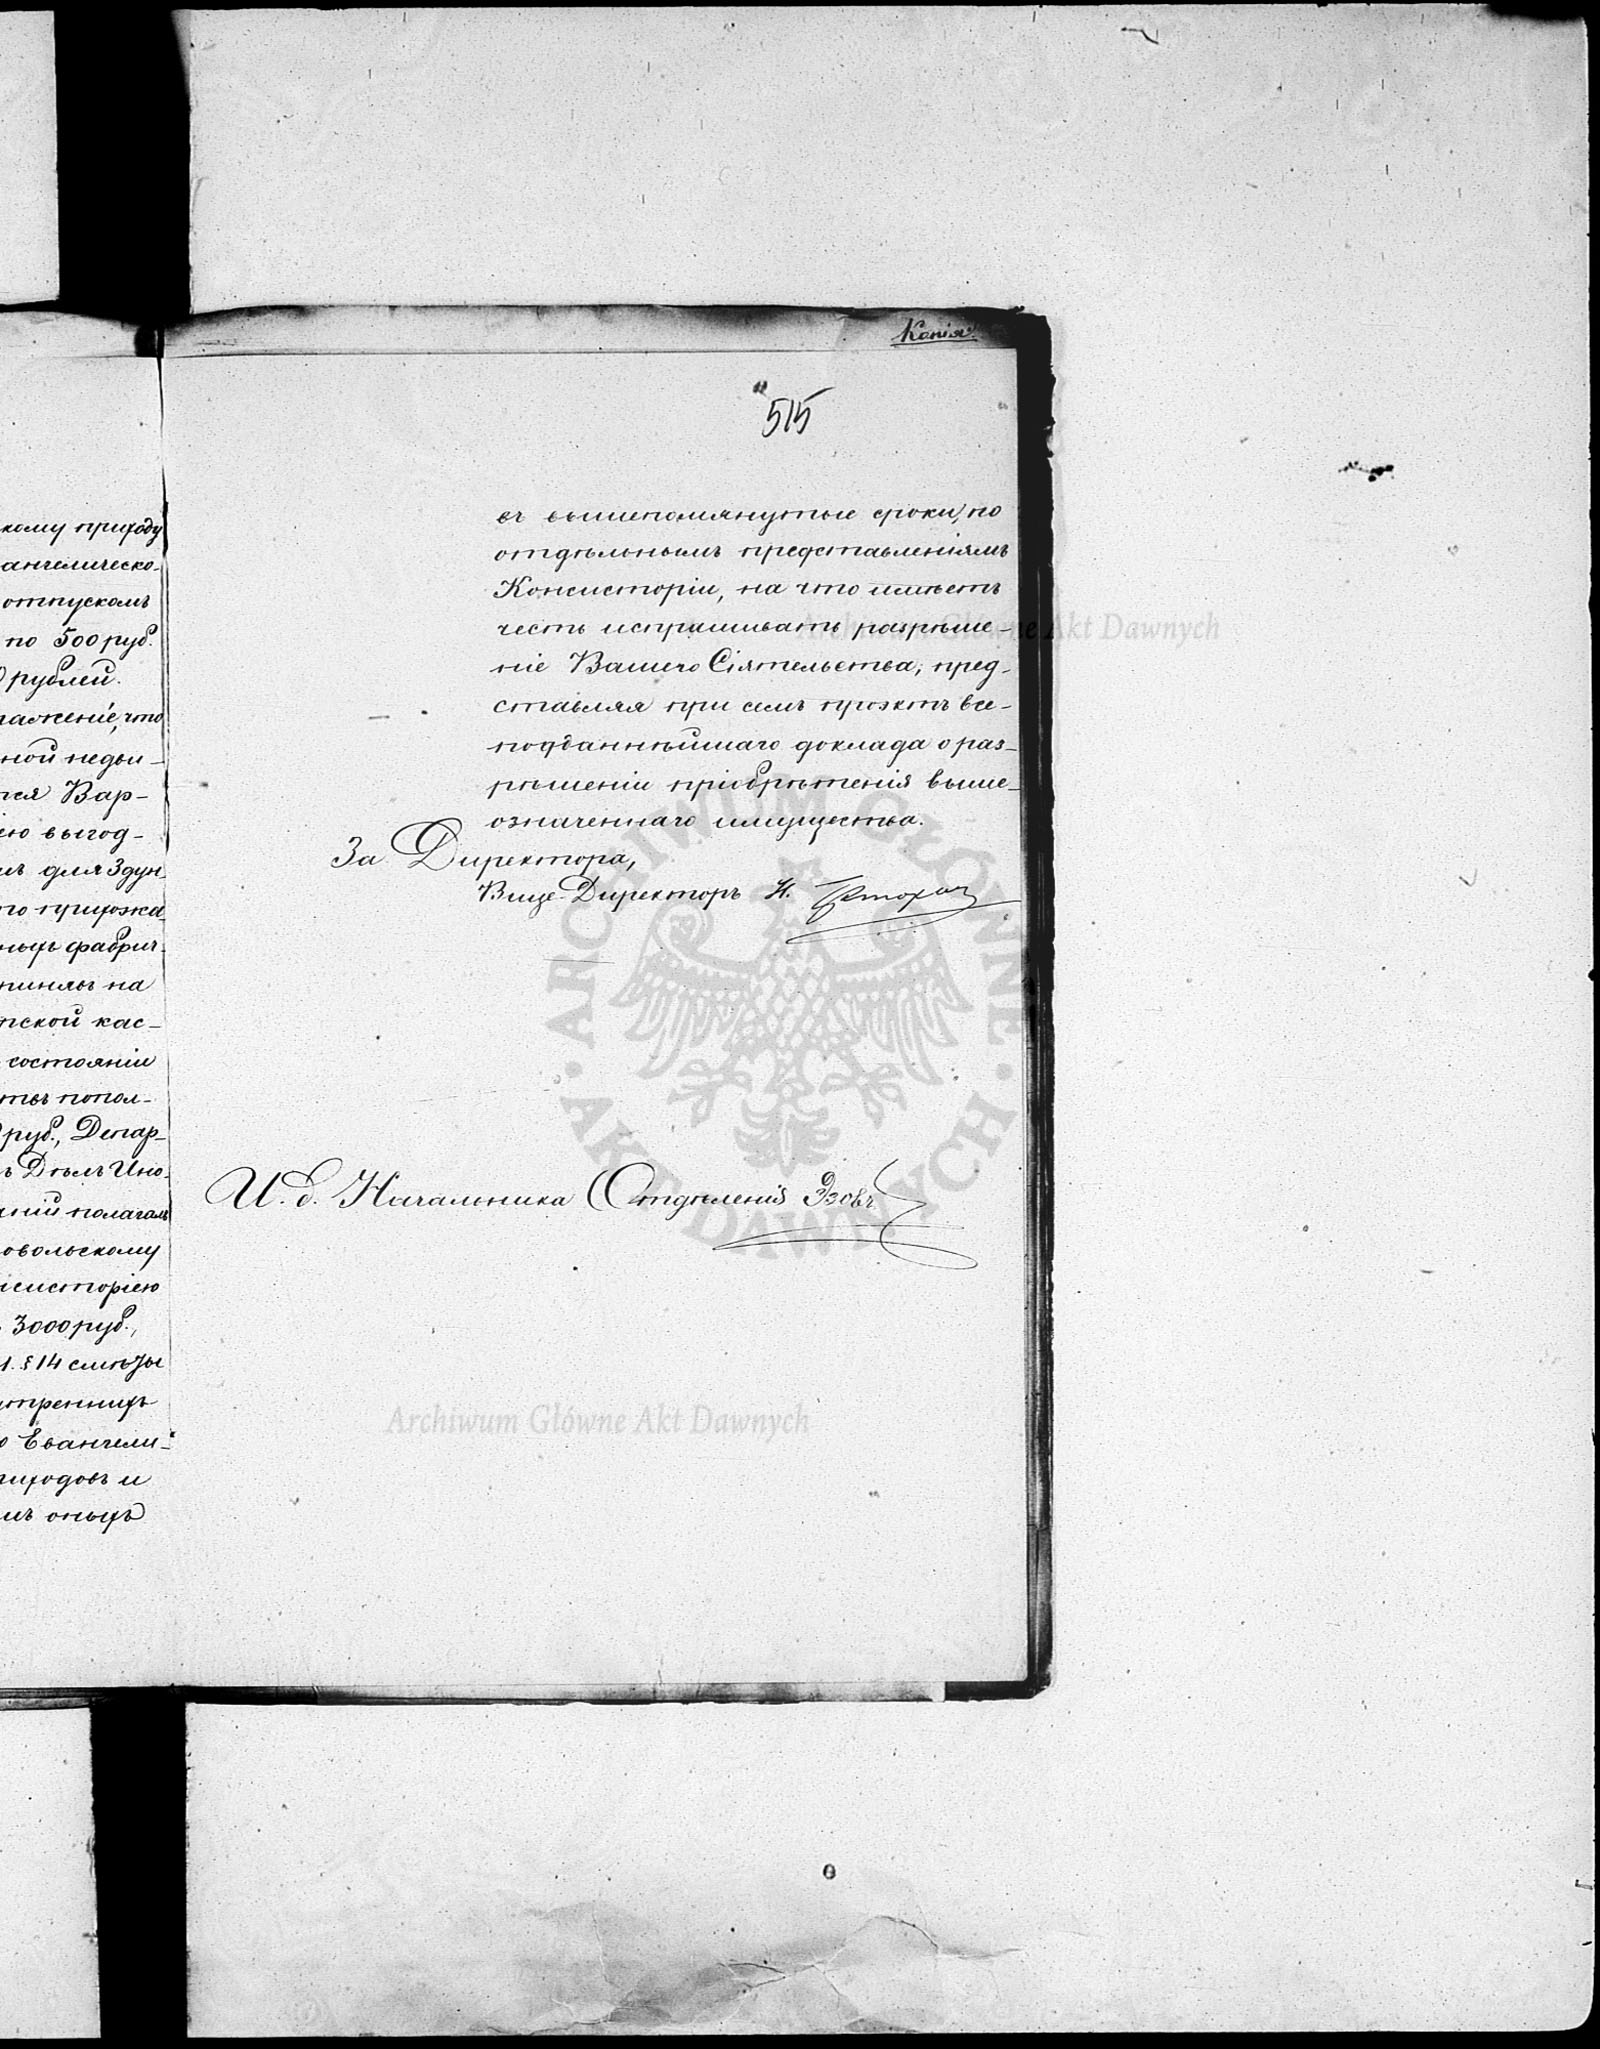 кому приходу
ангелическо-
отпускомъ
по 500 руб.
рублей.
раженіе, что
ной недви-
тся Вар-
ею выгод-
для Здун
го прихожа
ныхъ фабрич-
на
тской кас-
состояніи
попол-
руб., Депар-
ъ Дѣлъ Ино-
полагалъ
овольскому
нсисторіею
3000 руб.,
1. § 14 смѣты
утреннихъ
о Евангели-
риходовъ и
оныхъ
Копія.
515
въ вышепомянутые сроки, по
отдѣльнымъ представленіямъ
Консисторіи, на что имѣетъ
честь испрашивать разрѣше-
ніе Вашего Сіятельства, пред-
ставляя при семъ проэктъ все-
подданнѣйшаго доклада о раз-
рѣшеніи пріобрѣтенія выше-
означеннаго имущества.
За Директора,
Вице-Директоръ Н.
И. д. Начальника Отдѣленія Эзовъ
Archiwum Główne Akt Dawnych
ARCHIWUM GŁÓWNE · AKT DAWNYCH ·
Archiwum Główne Akt Dawnych